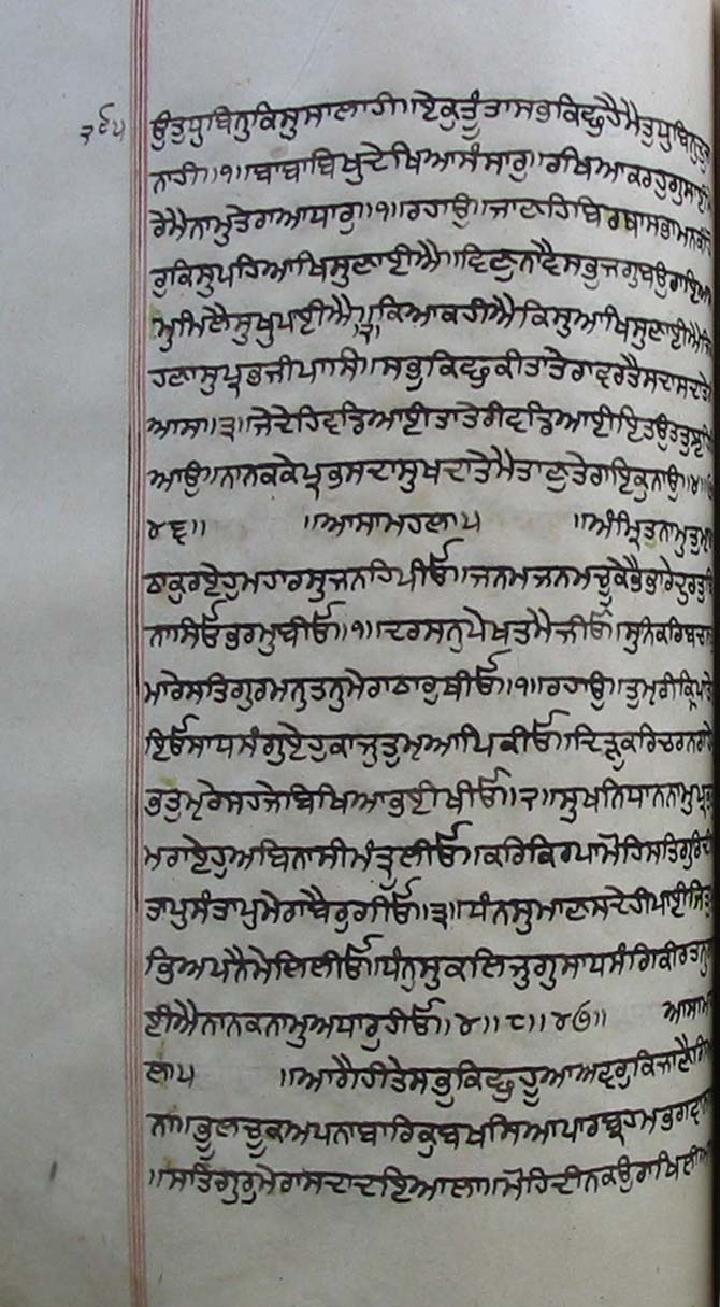 ੩੯੫
ਉਤੁਧੁਬਿਨੁਕਿਸੁਸਾਲਾਹੀ॥ਏਕੁਤੂੰਤਾਸਭਕਿਛੁਹੈਮੈਤੁਧੁਬਿਨੁ
ਨਾਹੀ॥੧॥ਬਾਬਾਬਿਖੁਦੇਖਿਆਸੰਸਾਰੁ॥ਰਖਿਆਕਰਹੁਗੁਸਾਈ
ਮੇਰੇਮੈਨਾਮੁਤੇਰਾਆਧਾਰੁ॥੧॥ਰਹਾਉ॥ਜਾਣਹਿਬਿਰਥਾਸਭਾਮਨਕੀ
ਰੁਕਿਸੁਪਹਿਆਖਿਸੁਣਾਈਐ॥ਵਿਣੁਨਾਵੈਸਭੁਜਗੁਬਉਰਾਇਆ
ਮੁਮਿਲੈਸੁਖੁਪਾਈਐ॥੨॥ਕਿਆਕਹੀਐਕਿਸੁਆਖਿਸੁਣਾਈਐ
ਹਣਾਸੁਪ੍ਰਭਜੀਪਾਸਿ॥ਸਭੁਕਿਛੁਕੀਤਾਤੇਰਾਵਰਤੈਸਦਾਸਦਾਤੇ
ਆਸਾ॥੩॥ਜੇਦੇਹਿਵਡਿਆਈਤਾਤੇਰੀਵਡਿਆਈਇਤਉਤਤੁਝਹਿ
ਆਉ॥ਨਾਨਕਕੇਪ੍ਰਭਸਦਾਸੁਖਦਾਤੇਮੈਤਾਣੁਤੇਰਾਇਕੁਨਾਉ॥੪॥
੪੬॥ ॥ਆਸਾਮਹਲਾ੫ ॥ਅੰਮ੍ਰਿਤਨਾਮੁਤੁਮਾ
ਠਾਕੁਰਏਹੁਮਹਾਰਸੁਜਨਹਿਪੀਓ॥ਜਨਮਜਨਮਚੂਕੇਭੈਭਾਰੇਦੁਰਤੁ
ਨਾਸਿਓਭਰਮੁਬੀਓ॥੧॥ਦਰਸਨੁਪੇਖਤਮੈਜੀਓ॥ਸੁਨਿਕਰਿਬਚਨ
ਮਾਰੇਸਤਿਗੁਰਮਨੁਤਨੁਮੇਰਾਠਾਰੁਥੀਓ॥੧॥ਰਹਾਉ॥ਤੁਮ੍ਰੀਕ੍ਰਿਪਾਤੇ
ਇਓਸਾਧਸੰਗੁਏਹੁਕਾਜੁਤੁਮ੍ਹਆਪਿਕੀਓ॥ਦਿੜੁਕਰਿਚਰਨਗਹੇ
ਭਤੁਮ੍ਰੇਸਹਜੇਬਿਖਿਆਭਈਖੀਓ॥੨॥ਸੁਖਨਿਧਾਨਨਾਮੁਪ੍ਰਭ
ਮਰਾਏਹੁਅਬਿਨਾਸੀਮੰਤ੍ਰੁਲੀਓ॥ਕਰਿਕਿਰਪਾਮੋਹਿਸਤਿਗੁਰਿਦੀ
ਤਾਪੁਸੰਤਾਪੁਮੇਰਾਬੈਰੁਗੀਓ॥੩॥ਧੰਨਸੁਮਾਣਸਦੇਹੀਪਾਈਜਿਤੁ
ਭਿਅਪਨੈਮੇਲਿਲੀਓ॥ਧੰਨੁਸੁਕਲਿਜੁਗੁਸਾਧਸੰਗਿਕੀਰਤਨੁ
ਈਐਨਾਨਕਨਾਮੁਅਧਾਰੁਹੀਓ॥੪॥੮॥੪੭॥ ਆਸਾਮ
ਲਾ੫ ॥ਆਗੈਹੀਤੇਸਭੁਕਿਛੁਹੂਆਅਵਰੁਕਿਜਾਣੈਗਿ
ਨਾ॥ਭੂਲਚੂਕਅਪਨਾਬਾਰਿਕੁਬਖਸਿਆਪਾਰਬ੍ਰਹਮਭਗਵਾ
॥ਸਤਿਗੁਰੁਮੇਰਾਸਦਾਦਇਆਲਾ॥ਮੋਹਿਦੀਨਕਉਰਾਖਿਲੀਆ